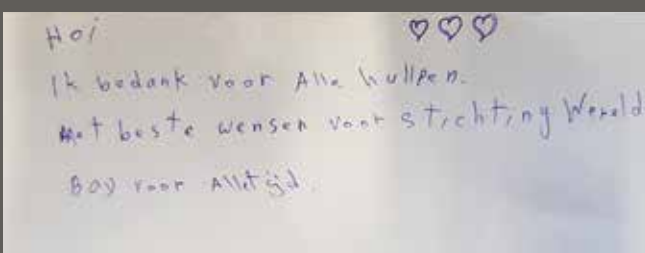 Hoi ♡♡♡
Ik bedank voor Alle hullpen.
Met beste wensen voor stichting Wereld
voor Alletijd.